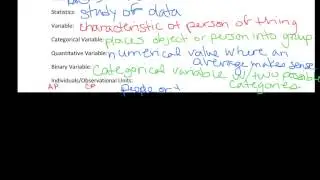 Statistics: study of data
Variable: characteristic of person of thing
Categorical Variable: places object or person into group
Quantitative Variable: numerical value where an
average makes sense
Binary Variable: Categorical variable w/ two possible
categories.
Individuals/Observational Units:
AP CP people or